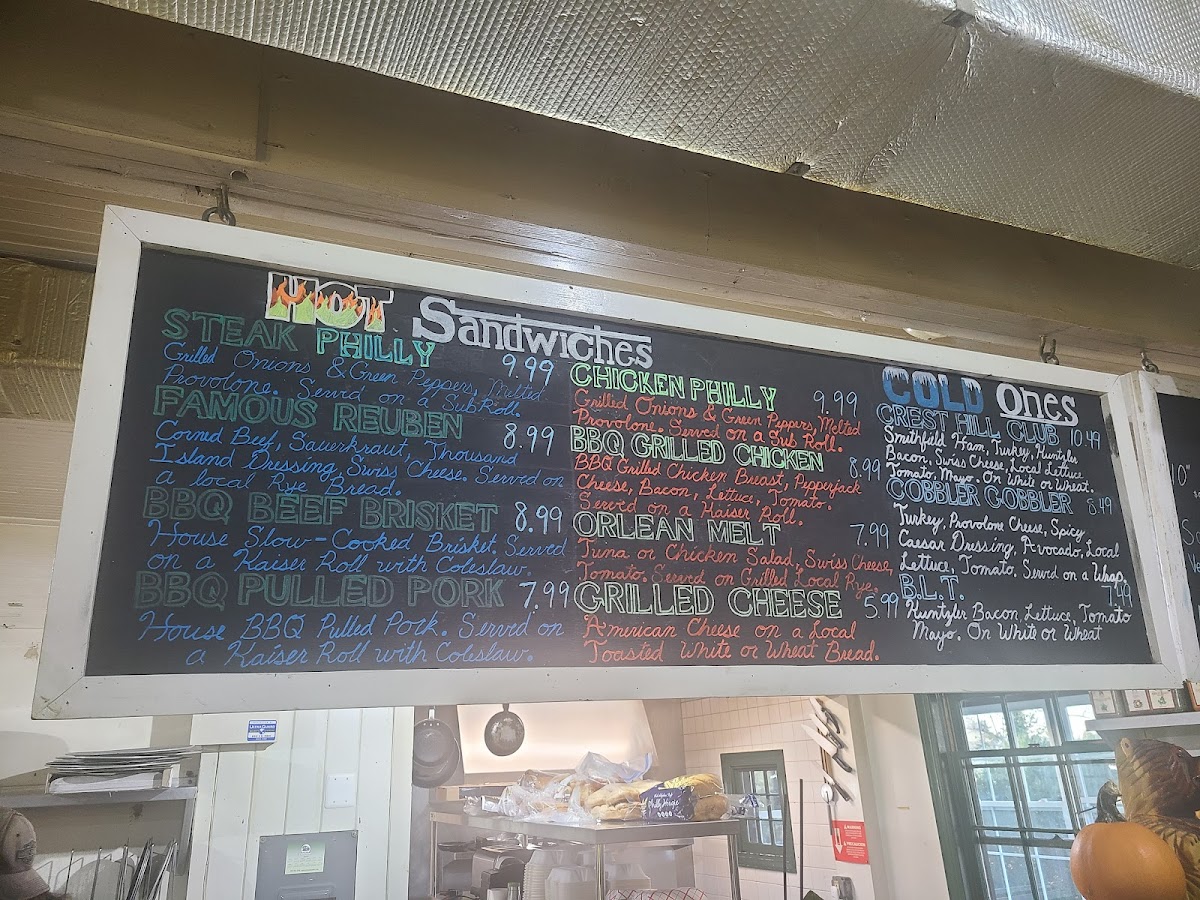 HOT Sandwiches
STEAK PHILLY 9.99
Grilled Onions & Green Peppers, Melted
Provolone. Served on a Sub Roll.
FAMOUS REUBEN 8.99
Corned Beef, Sauerkraut, Thousand
Island Dressing, Swiss Cheese. Served on
a local Rye Bread.
BBQ BEEF BRISKET 8.99
House Slow-Cooked Brisket. Served
on a Kaiser Roll with Coleslaw.
BBQ PULLED PORK 7.99
House BBQ Pulled Pork. Served on
a Kaiser Roll with Coleslaw.
CHICKEN PHILLY 9.99
Grilled Onions & Green Peppers, Melted
Provolone. Served on a Sub Roll.
BBQ GRILLED CHICKEN 8.99
BBQ Grilled Chicken Breast, Pepperjack
Cheese, Bacon, Lettuce, Tomato.
Served on a Kaiser Roll.
ORLEAN MELT 7.99
Tuna or Chicken Salad, Swiss Cheese,
Tomato. Served on Grilled Local Rye.
GRILLED CHEESE 5.99
American Cheese on a Local
Toasted White or Wheat Bread.
COLD Ones
CREST HILL CLUB 10.49
Smithfield Ham, Turkey, Kuntyler
Bacon, Swiss Cheese, Local Lettuce
Tomato, Mayo. On White or Wheat.
COBBLER GOBBLER 8.49
Turkey, Provolone Cheese, Spicy
Caesar Dressing, Avocado, Local
Lettuce, Tomato. Served on a Wrap.
B.L.T. 7.99
Kuntyler Bacon, Lettuce, Tomato
Mayo. On White or Wheat
10"